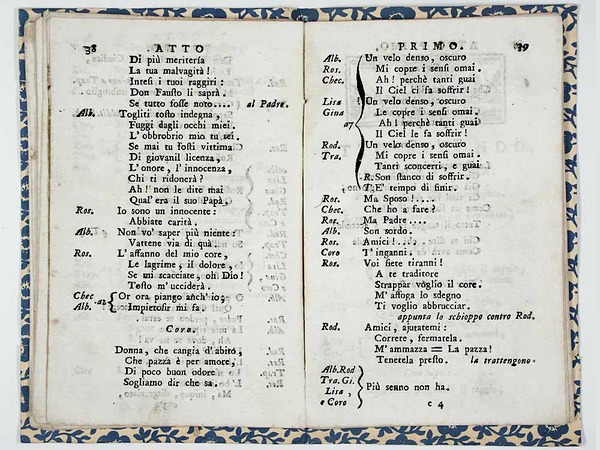 38 ATTO
Di più meritersa
La tua malvagità!
Intesi i tuoi raggiri:
Don Fausto li saprà.
Se tutto fosse noto.... al Padre.
Alb. Togliti tosto indegna,
Fuggi dagli occhi miei.
L' obbrobrio mio tu sei.
Se mai tu fosti vittima
Di giovanil licenza,
L' onore, l' innocenza,
Chi ti ridonerà?
Ah! non le dite mai
Qual' era il suo Papà,
Ros. Io sono un innocente:
Abbiate carità.
Alb. Non vo' saper più niente:
Vattene via di quà.
Ros. L' affanno del mio core,
Le lagrime, il dolore,
Se mi scacciate, oh Dio!
Tosto m' ucciderà.
Chec Or ora piango anch' io;
Alb. a2 Impietosir mi fa.
Coro.
Donna, che cangia d' abito,
Che pazza è per amore,
Di poco buon odore
Sogliamo dir che sa.
PRIMO. 39
Alb. Un velo denso, oscuro
Ros. Mi copre i sensi omai.
Chec. Ah! perchè tanti guai
Il Ciel ci fa soffrir!
Lisa Un velo denso, oscuro
Gina Le copre i sensi omai.
a7 Ah! perchè tanti guai
Il Ciel le fa soffrir!
Rod. Un velo denso, oscuro
Tra. Mi copre i sensi omai.
Tanti sconcerti, e guai
R. Son stanco di soffrir.
T. E' tempo di finir.
Ros. Ma Sposo!....
Chec. Che ho a fare?
Ros. Ma Padre....
Alb. Son sordo.
Ros. Amici!....
Coro T' inganni.
Ros. Voi siete tiranni!
A te traditore
Strappar voglio il core.
M' affoga lo sdegno
Ti voglio abbrucciar.
appunta lo schioppo contro Rod.
Rod. Amici, ajutatemi:
Correte, fermatela.
M' ammazza = La pazza!
Tenetela presto. la trattengono.
Alb. Rod
Tra. Gi.
Lisa, Più senno non ha.
e Coro
c 4